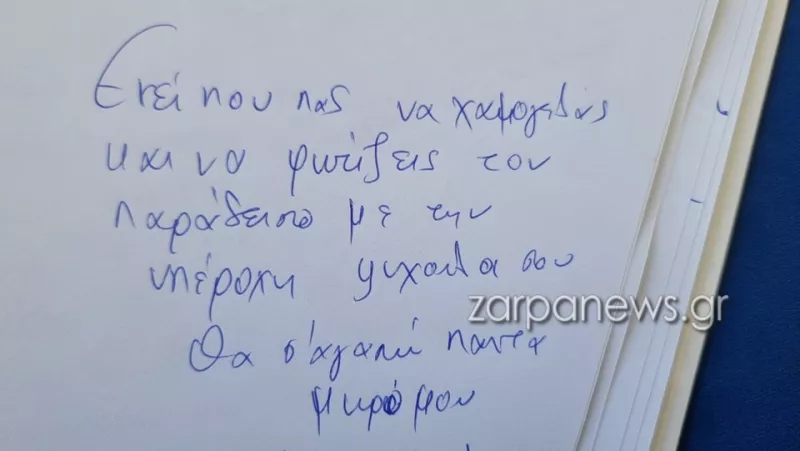 Εκεί που πας να χαμογελάς
και να φωτίζεις τον
παράδεισο με την
υπέροχη ψυχούλα σου
zarpanews.gr
Θα σ'αγαπώ πάντα
μικρό μου